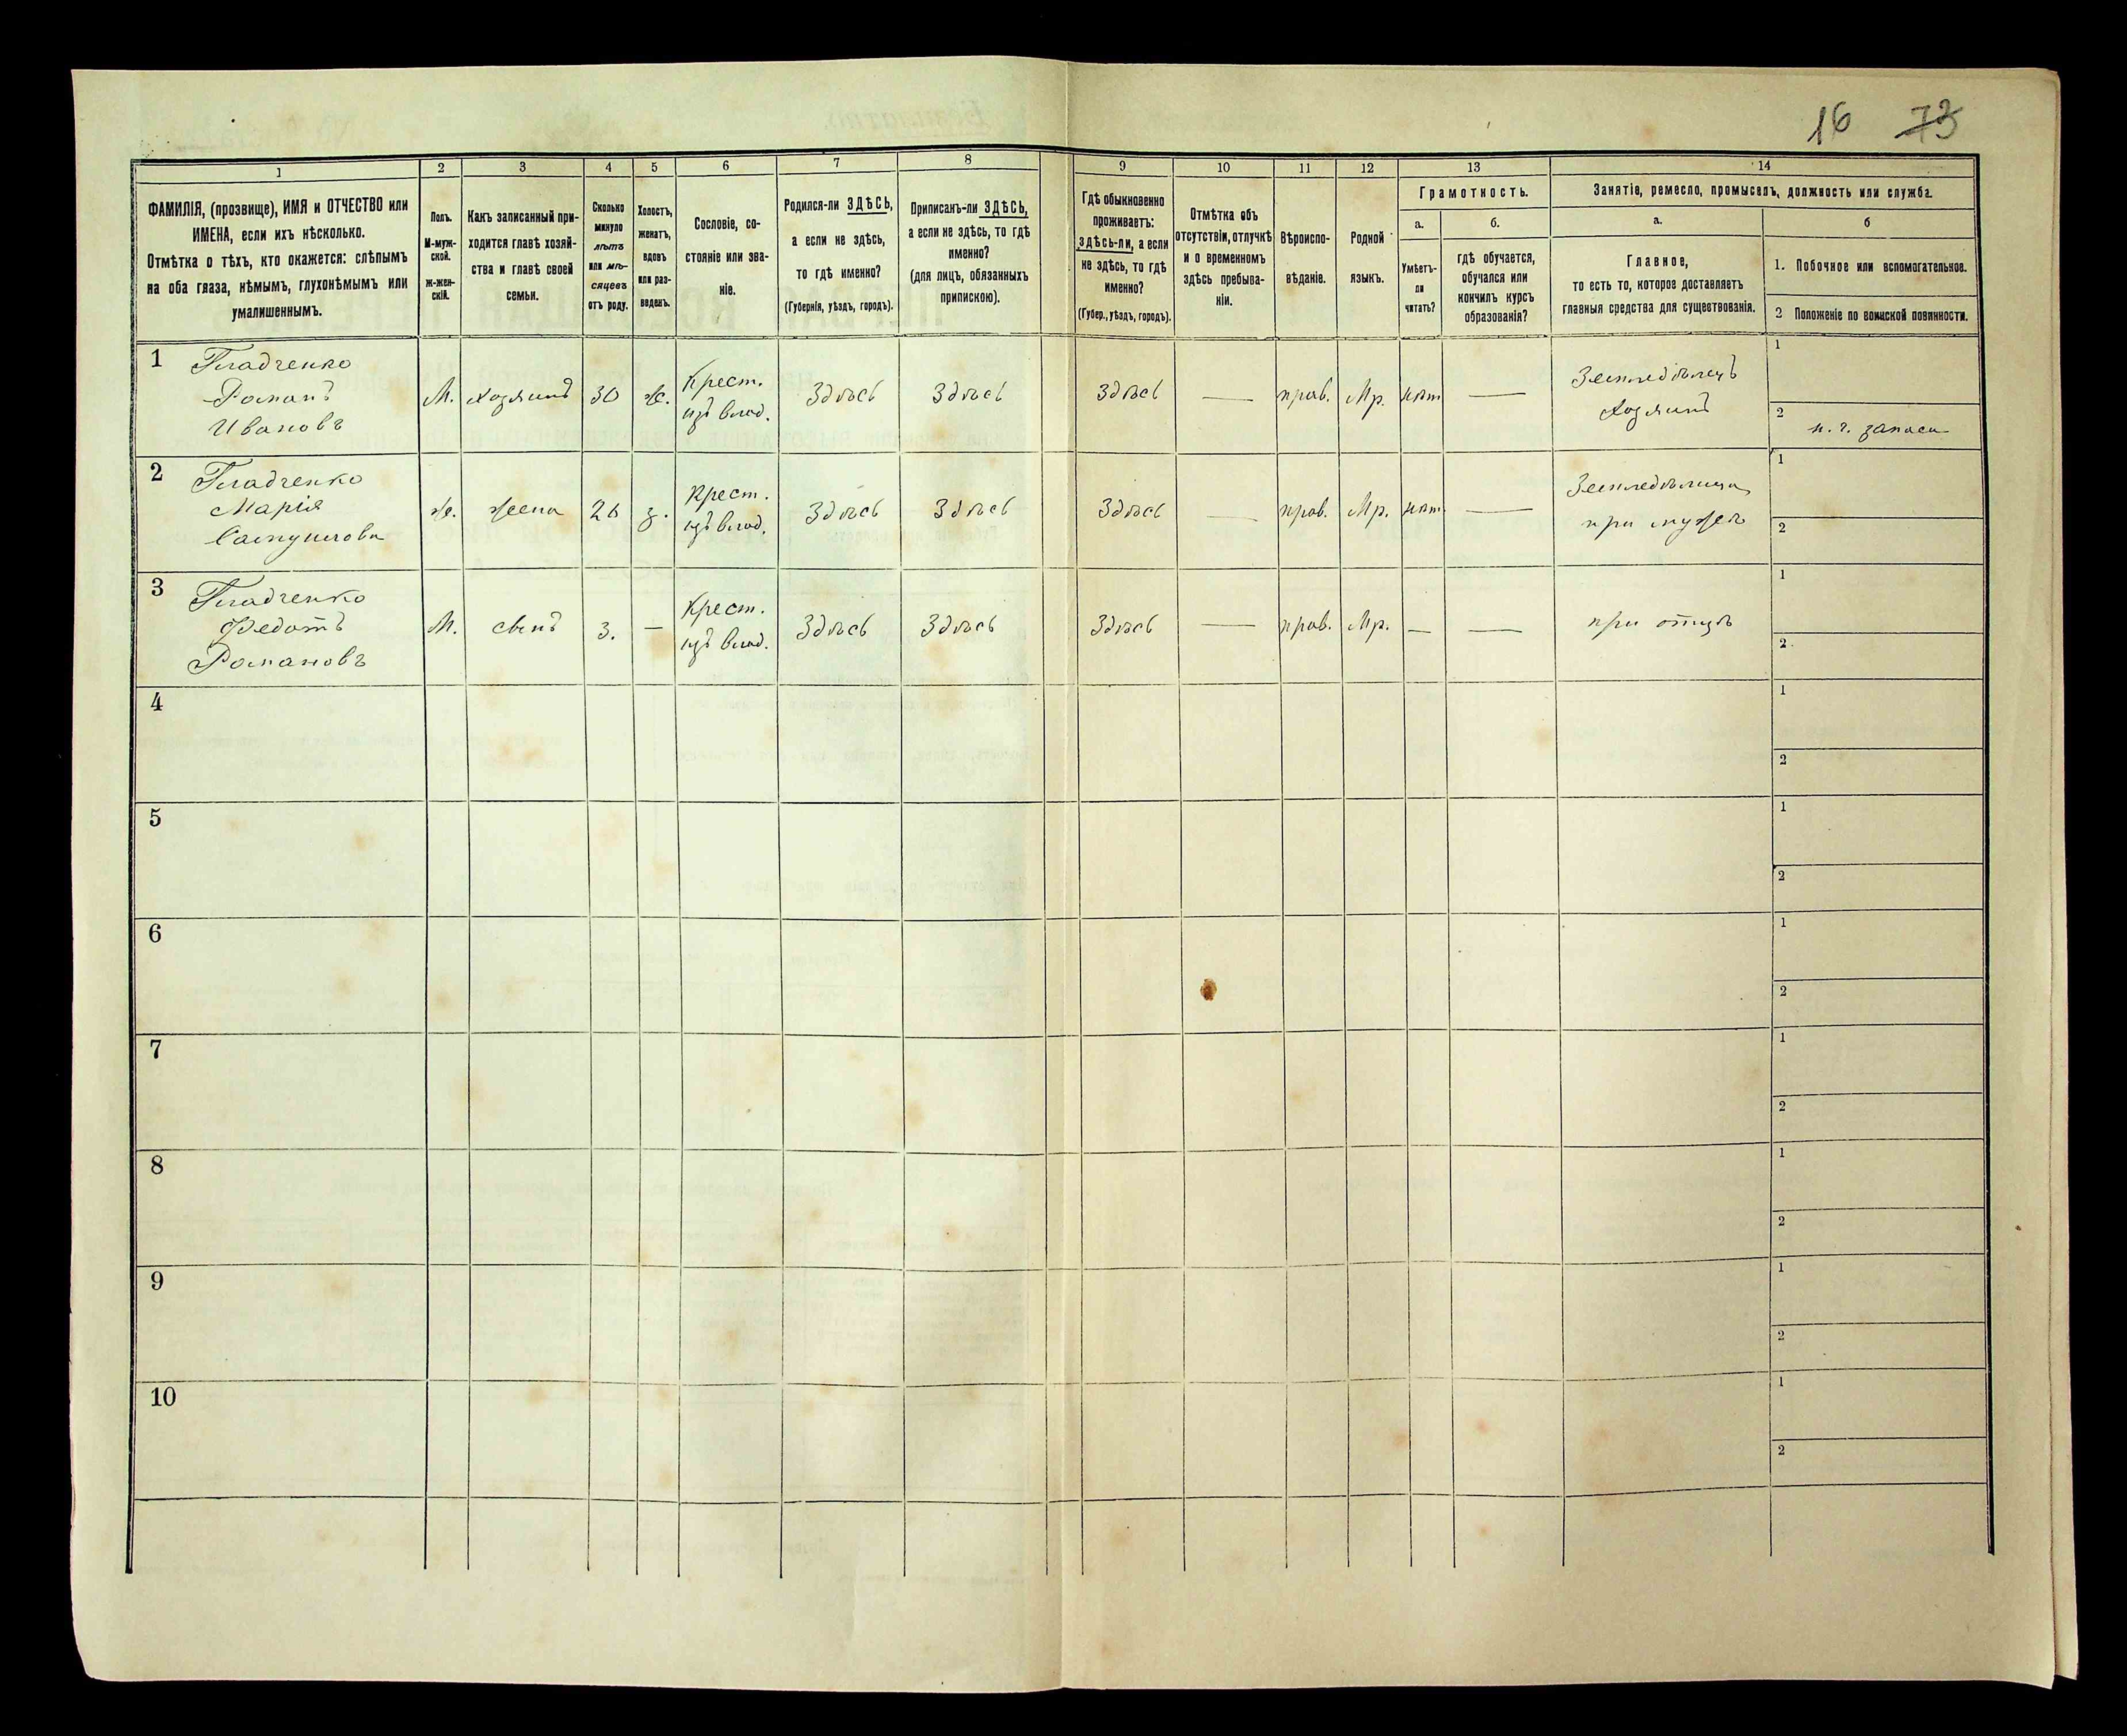 16 73
1 2 3 4 5 6 7 8 9 10 11 12 13 14
ФАМИЛІЯ, (прозвище), ИМЯ и ОТЧЕСТВО или
ИМЕНА, если ихъ нѣсколько.
Отмѣтка о тѣхъ, кто окажется: слѣпымъ
на оба глаза, нѣмымъ, глухонѣмымъ или
умалишеннымъ.
Полъ.
М-муж-
ской.
Ж-жен-
скій.
Какъ записанный при-
ходится главѣ хозяй-
ства и главѣ своей
семьи.
Сколько
минуло
лѣтъ
или мѣ-
сяцевъ
отъ роду.
Холостъ,
женатъ,
вдовъ
или раз-
веденъ.
Сословіе, со-
стояніе или зва-
ніе.
Родился-ли ЗДѢСЬ,
а если не здѣсь,
то гдѣ именно?
(Губернія, уѣздъ, городъ).
Приписанъ-ли ЗДѢСЬ,
а если не здѣсь, то гдѣ
именно?
(для лицъ, обязанныхъ
припискою).
Гдѣ обыкновенно
проживаетъ:
ЗДѢСЬ-ли, а если
не здѣсь, то гдѣ
именно?
(Губер., уѣздъ, городъ).
Отмѣтка объ
отсутствіи, отлучкѣ
и о временномъ
здѣсь пребыва-
ніи.
Вѣроиспо-
вѣданіе.
Родной
языкъ.
Грамотность.
а.
Умѣетъ-
ли
читать?
б.
гдѣ обучается,
обучался или
кончилъ курсъ
образованія?
Занятіе, ремесло, промыселъ, должность или служба.
а.
Главное,
то есть то, которое доставляетъ
главныя средства для существованія.
б
1. Побочное или вспомогательное.
2 Положеніе по воинской повинности.
1 Гладченко
Романъ
Ивановъ
М. хозяинъ 30 ж. Крест.
изъ влад.
Здѣсь Здѣсь Здѣсь — прав. Мр. нѣтъ — Земледѣлецъ
Хозяинъ
1
2 н. ч. запаса
2 Гладченко
Марія
Самуилова
ж. жена 26 з. Крест.
изъ влад.
Здѣсь Здѣсь Здѣсь — прав. Мр. нѣтъ — Земледѣлица
при мужѣ
1
2
3 Гладченко
Федотъ
Романовъ
М. сынъ 3. — Крест.
изъ влад.
Здѣсь Здѣсь Здѣсь — прав. Мр. — — при отцѣ
1
2
4 1
2
5 1
2
6 1
2
7 1
2
8 1
2
9 1
2
10 1
2